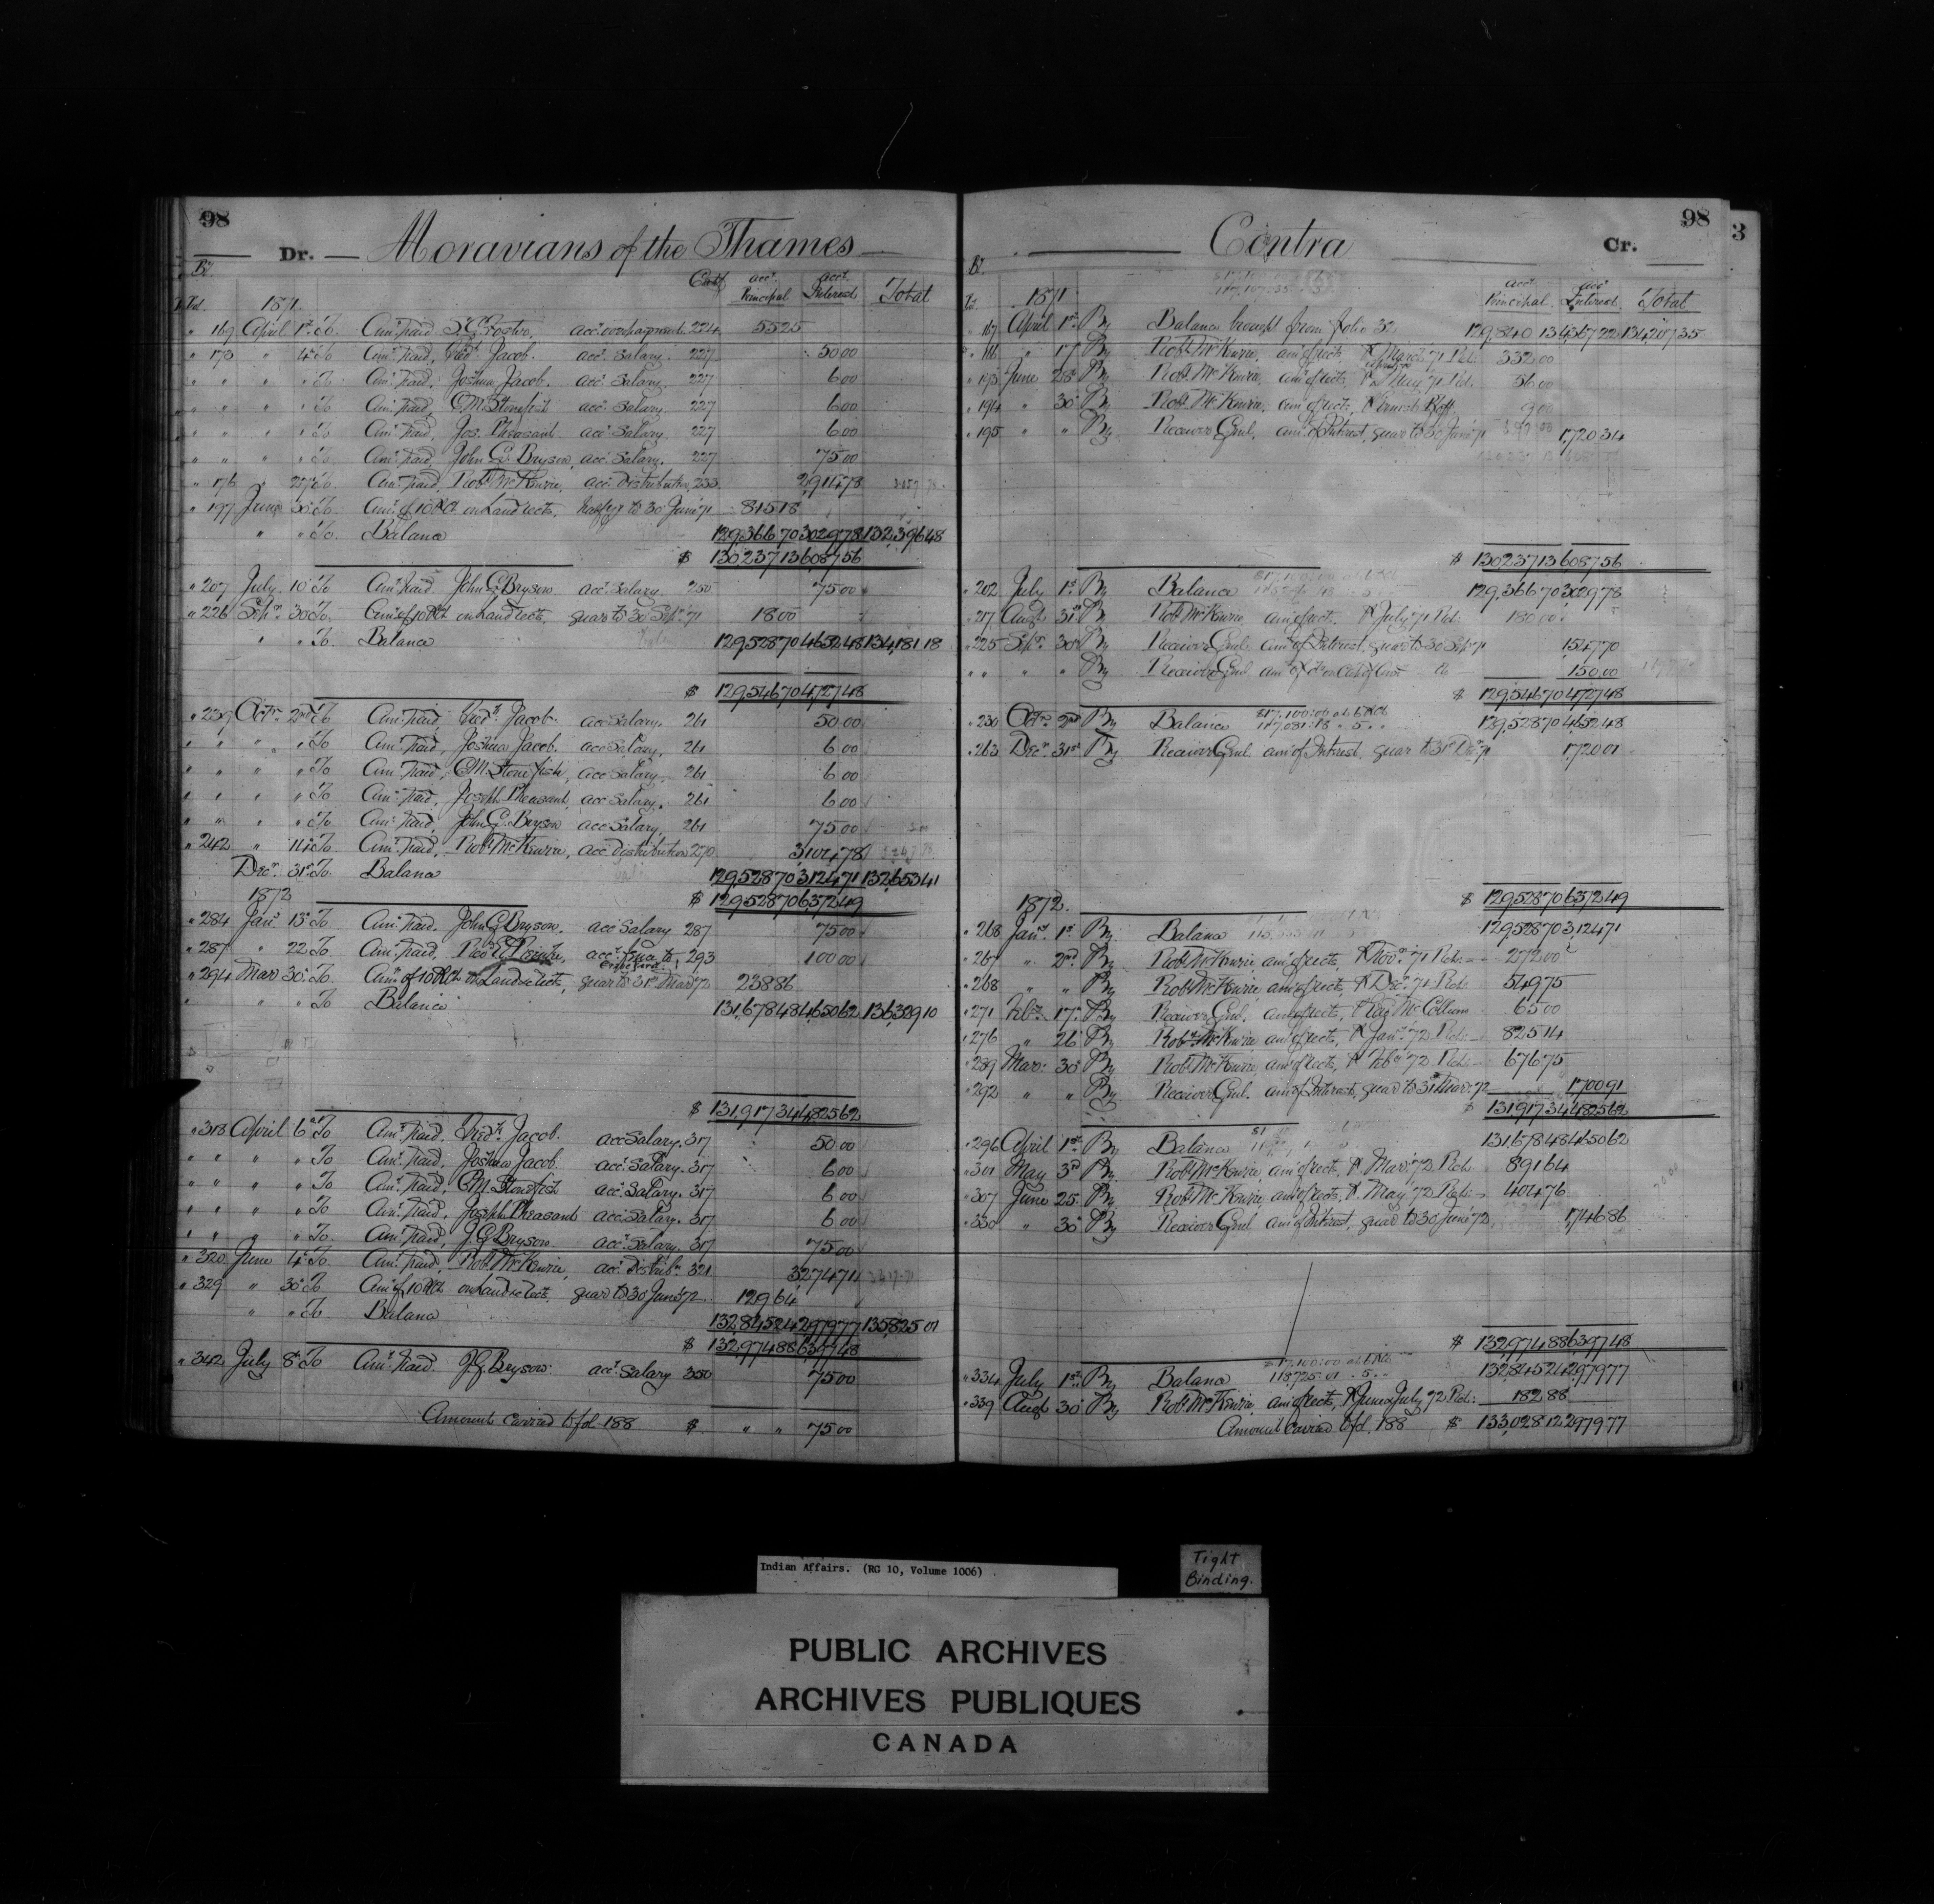 98
Dr. Moravians of the Thames
Certf. acct. Principal acct. Interest Total
1871
" 169 April 1st To Amt. paid S. C. Foster, acct. 224 55 25
" 173 " 4 To Amt. paid, Fredk. Jacob. acct. Salary. 227 50 00
" " " " To Amt. paid, Joshua Jacob. acct. Salary. 227 6 00
" " " " To Amt. paid, C. M. Stonefish acct. Salary. 227 6 00
" " " " To Amt. paid, Jos. Pheasant acct. Salary. 227 6 00
" " " " To Amt. paid, John C. Bryson, acct. Salary. 227 75 00
" 176 " 27 To Amt. paid, Robt. McKenzie, acct. distribution, 233 2,914 78
" 197 June 30 To Amt. of 10 P Ct. on Land cects, half yr to 30 June 71 815 18
" " To Balance 129,366 70 3029 78 132,396 48
$ 130237 13 6087 56
" 207 July 10 To Amt. paid John C. Bryson acct. Salary 250 75 00
" 226 Septr. 30 To Amt. of 10 P Ct. on Land cects, quar to 30 Sepr. 71 18 00
" " To Balance 129,528 70 4652 48 134,181 18
$ 129,546 70 4,727 48
" 239 Octr. 2nd To Amt. paid, Fredk. Jacob. acct. Salary. 261 50 00
" " " " To Amt. paid, Joshua Jacob. acct. Salary, 261 6 00
" " " " To Amt. paid, C. M. Stonefish, acct. Salary. 261 6 00
" " " " To Amt. paid, Joseph Pheasant, acct. Salary. 261 6 00
" " " " To Amt. paid, John C. Bryson acct. Salary, 261 75 00
" 242 " 14 To Amt. paid, Robt. McKenzie, acct. distribution 270 3,104 78
Decr. 31st To Balance 129,528 70 3,124 71 132,653 41
1872 $ 129,528 70 6,372 49
" 284 Jany. 13 To Amt. paid, John C. Bryson, acct. Salary 287 75 00
" 287 " 22 To Amt. paid, acct. 293 100 00
" 294 Mar 30 To Amt. of 10 P Ct. on Land cects, quar to 31st Mar 72 238 86
" " To Balance 131,678 48 4,650 62 136,329 10
$ 131,917 34 4,825 62
" 313 April 6 To Amt. paid, Fredk. Jacob. acct. Salary. 317 50 00
" " " " To Amt. paid, Joshua Jacob acct. Salary. 317 6 00
" " " " To Amt. paid, C. M. Stonefish acct. Salary. 317 6 00
" " " " To Amt. paid, Joseph Pheasant acct. Salary. 317 6 00
" " " " To Amt. paid, J. C. Bryson acct. Salary. 317 75 00
" 320 June 4 To Amt. paid, Robt. McKenzie, acct. Distribn. 321 3,274 71
" 329 " 30 To Amt. of 10 P Ct. on Land cects, quar to 30 June 72 129 64
" " To Balance 132,845 24 2,979 77 135,825 01
$ 132,974 88 6,397 48
" 342 July 8 To Amt. paid. J. C. Bryson acct. Salary 350 75 00
Amount carried to fol. 188 $ " " 75 00
Contra Cr. 98
3
acct. Principal acct. Interest Total
1871
" 167 April 1st By Balance brought from folio 32 129,840 13 4367 22 134,207 35
" 186 " 17 By Robt. McKenzie, amt. of cects, P March 71 Ret. 332 00
" 193 June 28 By Robt. McKenzie, amt. of cects, P May 71 Ret. 56 00
" 194 " 30 By Robt. McKenzie, amt. of cects, 9 00
" 195 " " By Receiver Genl. amt. of Interest, quar to 30 June 71 1,720 34
$ 130237 13 6087 56
" 202 July 1st By Balance 129,366 70 3029 78
" 217 Augt. 31st By Robt. McKenzie amt. of cects, P July 71 Ret. 180 00
" 225 Septr. 30 By Receiver Genl. amt. of Interest, quar to 30 Sepr 71 1547 70
" " " " By Receiver Genl amt. of 150 00
$ 129,546 70 4,727 48
" 230 Octr. 2nd By Balance $17,100:00 at 6 P Ct 129,528 70 4,652 48
" 263 Decr. 31st By Receiver Genl. amt. of Interest, quar to 31st Decr. 71 1,720 01
$ 129,528 70 6,372 49
1872.
" 268 Jany. 1st By Balance 129,528 70 3,124 71
" 267 " 2nd By Robt. McKenzie amt. of cects, P Novr. 71 Ret. 272 00
" 268 " " By Robt. McKenzie amt. of cects, P Decr. 71 Ret. 549 75
" 271 Feby. 17 By Receiver Genl. amt. of cects, McCollum 65 00
" 276 " 26 By Robt. McKenzie amt. of cects, P Jany. 72 Ret. 825 14
" 289 Mar: 30 By Robt. McKenzie, amt. of cects, P Feby. 72 Ret. 676 75
" 292 " " By Receiver Genl. amt. of Interest, quar to 31st Mar: 72 1700 91
$ 131,917 34 4,825 62
" 296 April 1st By Balance 131,678 48 4,650 62
" 301 May 3rd By Robt. McKenzie, amt. of cects, P Mar: 72 Ret. 891 64
" 307 June 25 By Robt. McKenzie, amt. of cects, P May 72 Ret. 404 76
" 330 " 30 By Receiver Genl amt. of Interest, quar to 30 June 72 1,746 86
$ 132,974 88 6,397 48
" 334 July 1st By Balance $17,100:00 at 6 P Ct 118,725.01 . 5 . . 132,845 24 2,979 77
" 339 Augt. 30 By Robt. McKenzie, amt. of cects, P June & July 72 Ret: 182 88
Amount carried to fol. 188 $ 133,028 12 2,979 77
Indian Affairs. (RG 10, Volume 1006)
Tight
Binding.
PUBLIC ARCHIVES
ARCHIVES PUBLIQUES
CANADA